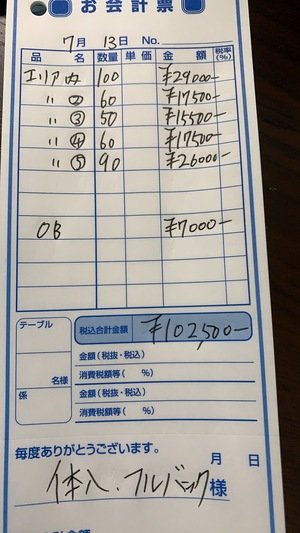 お会計票
7月 13日 No.
品 名 数量 単価 金 額 税率(%)
エリア内 100 ¥29000-
〃 ② 60 ¥17500-
〃 ③ 50 ¥15500-
〃 ④ 60 ¥17500-
〃 ⑤ 90 ¥26000-
OB ¥7000-
テーブル 税込合計金額 ¥102,500-
金額(税抜・税込)
名様 消費税額等( %)
係 金額(税抜・税込)
消費税額等( %)
毎度ありがとうございます。 月 日
体入.フルバック様